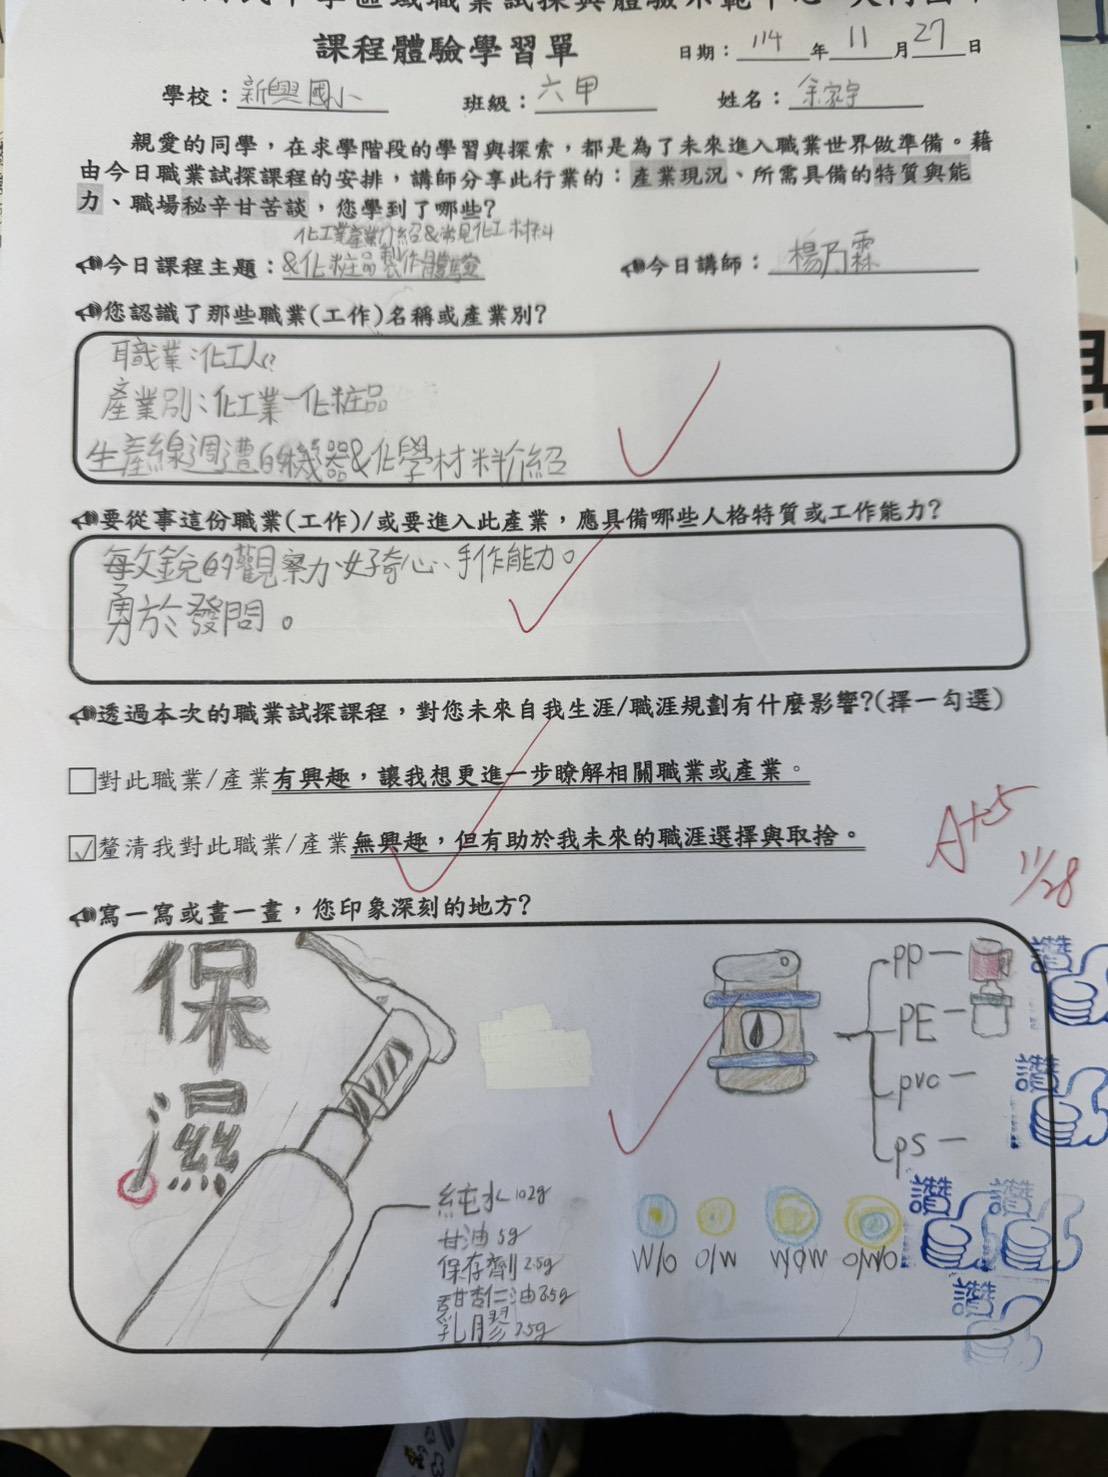 課程體驗學習單
日期：114年11月27日
學校：新興國小 班級：六甲 姓名：余家宇
親愛的同學，在求學階段的學習與探索，都是為了未來進入職業世界做準備。藉
由今日職業試探課程的安排，講師分享此行業的：產業現況、所需具備的特質與能
力、職場秘辛甘苦談，您學到了哪些？
化工業產業介紹&常見化工材料
今日課程主題：&化粧品製作體驗 今日講師：楊乃霖
您認識了那些職業(工作)名稱或產業別？
職業：化工人
產業別：化工業－化粧品
生產線週遭的機器&化學材料介紹
要從事這份職業(工作)/或要進入此產業，應具備哪些人格特質或工作能力？
敏銳的觀察力、好奇心、手作能力。
勇於發問。
透過本次的職業試探課程，對您未來自我生涯/職涯規劃有什麼影響?(擇一勾選)
□對此職業/產業有興趣，讓我想更進一步瞭解相關職業或產業。
☑釐清我對此職業/產業無興趣，但有助於我未來的職涯選擇與取捨。
A+5
11/28
寫一寫或畫一畫，您印象深刻的地方？
保濕
PP－
PE－
pvc－
ps－
純水102g
甘油5g
保存劑2.5g
甜杏仁油2.5g
乳膠2.5g
W/O O/W W/O/W O/W/O
讚
讚
讚
讚
讚